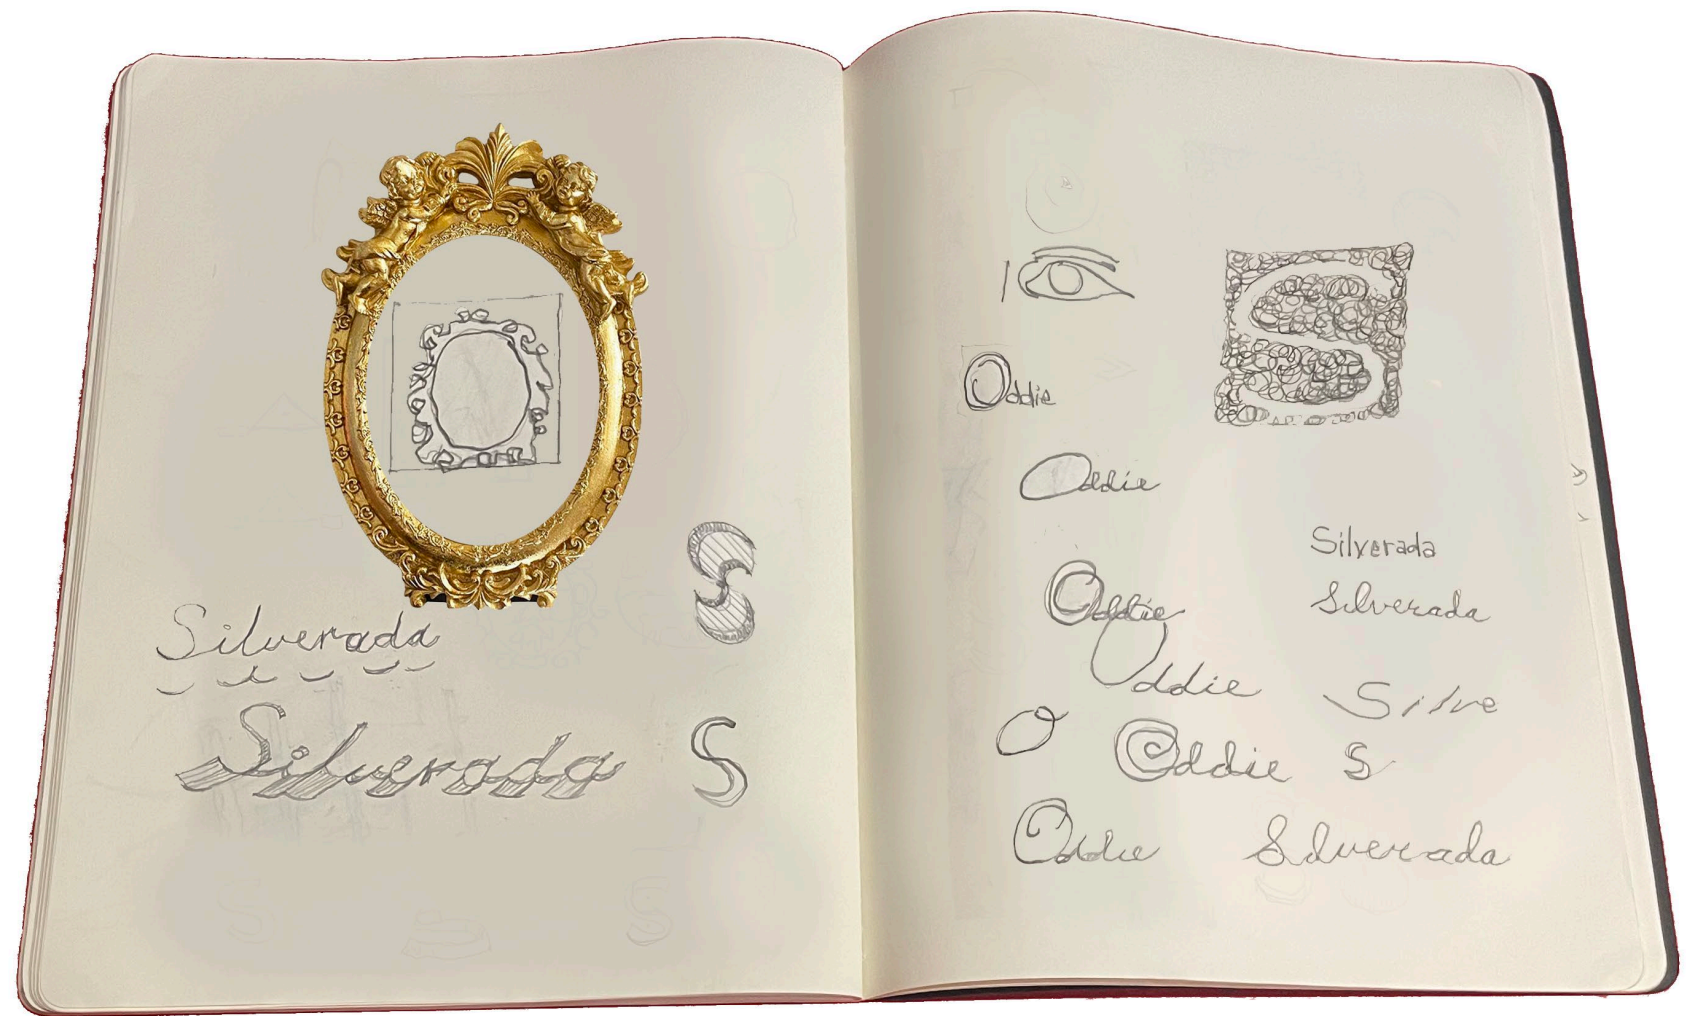 S
Silverada
Silverada
S
S
Oddie
Oddie
Oddie
Oddie
O
Oddie
Oddie
Silverada
Silverada
Silve
S
Silverada